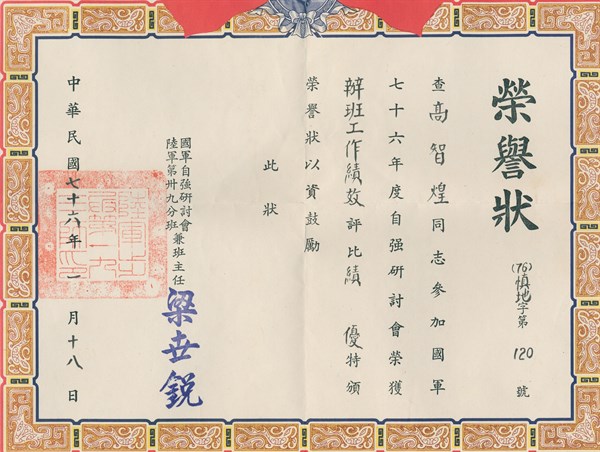 榮譽狀
(76)慎地字第120號
查高智煌同志參加國軍
七十六年度自强研討會榮獲
辦班工作績效評比績優特頒
榮譽狀以資鼓勵
此狀
國軍自強研討會
陸軍第卅九分班兼班主任
梁世銳
中華民國七十六年二月十八日